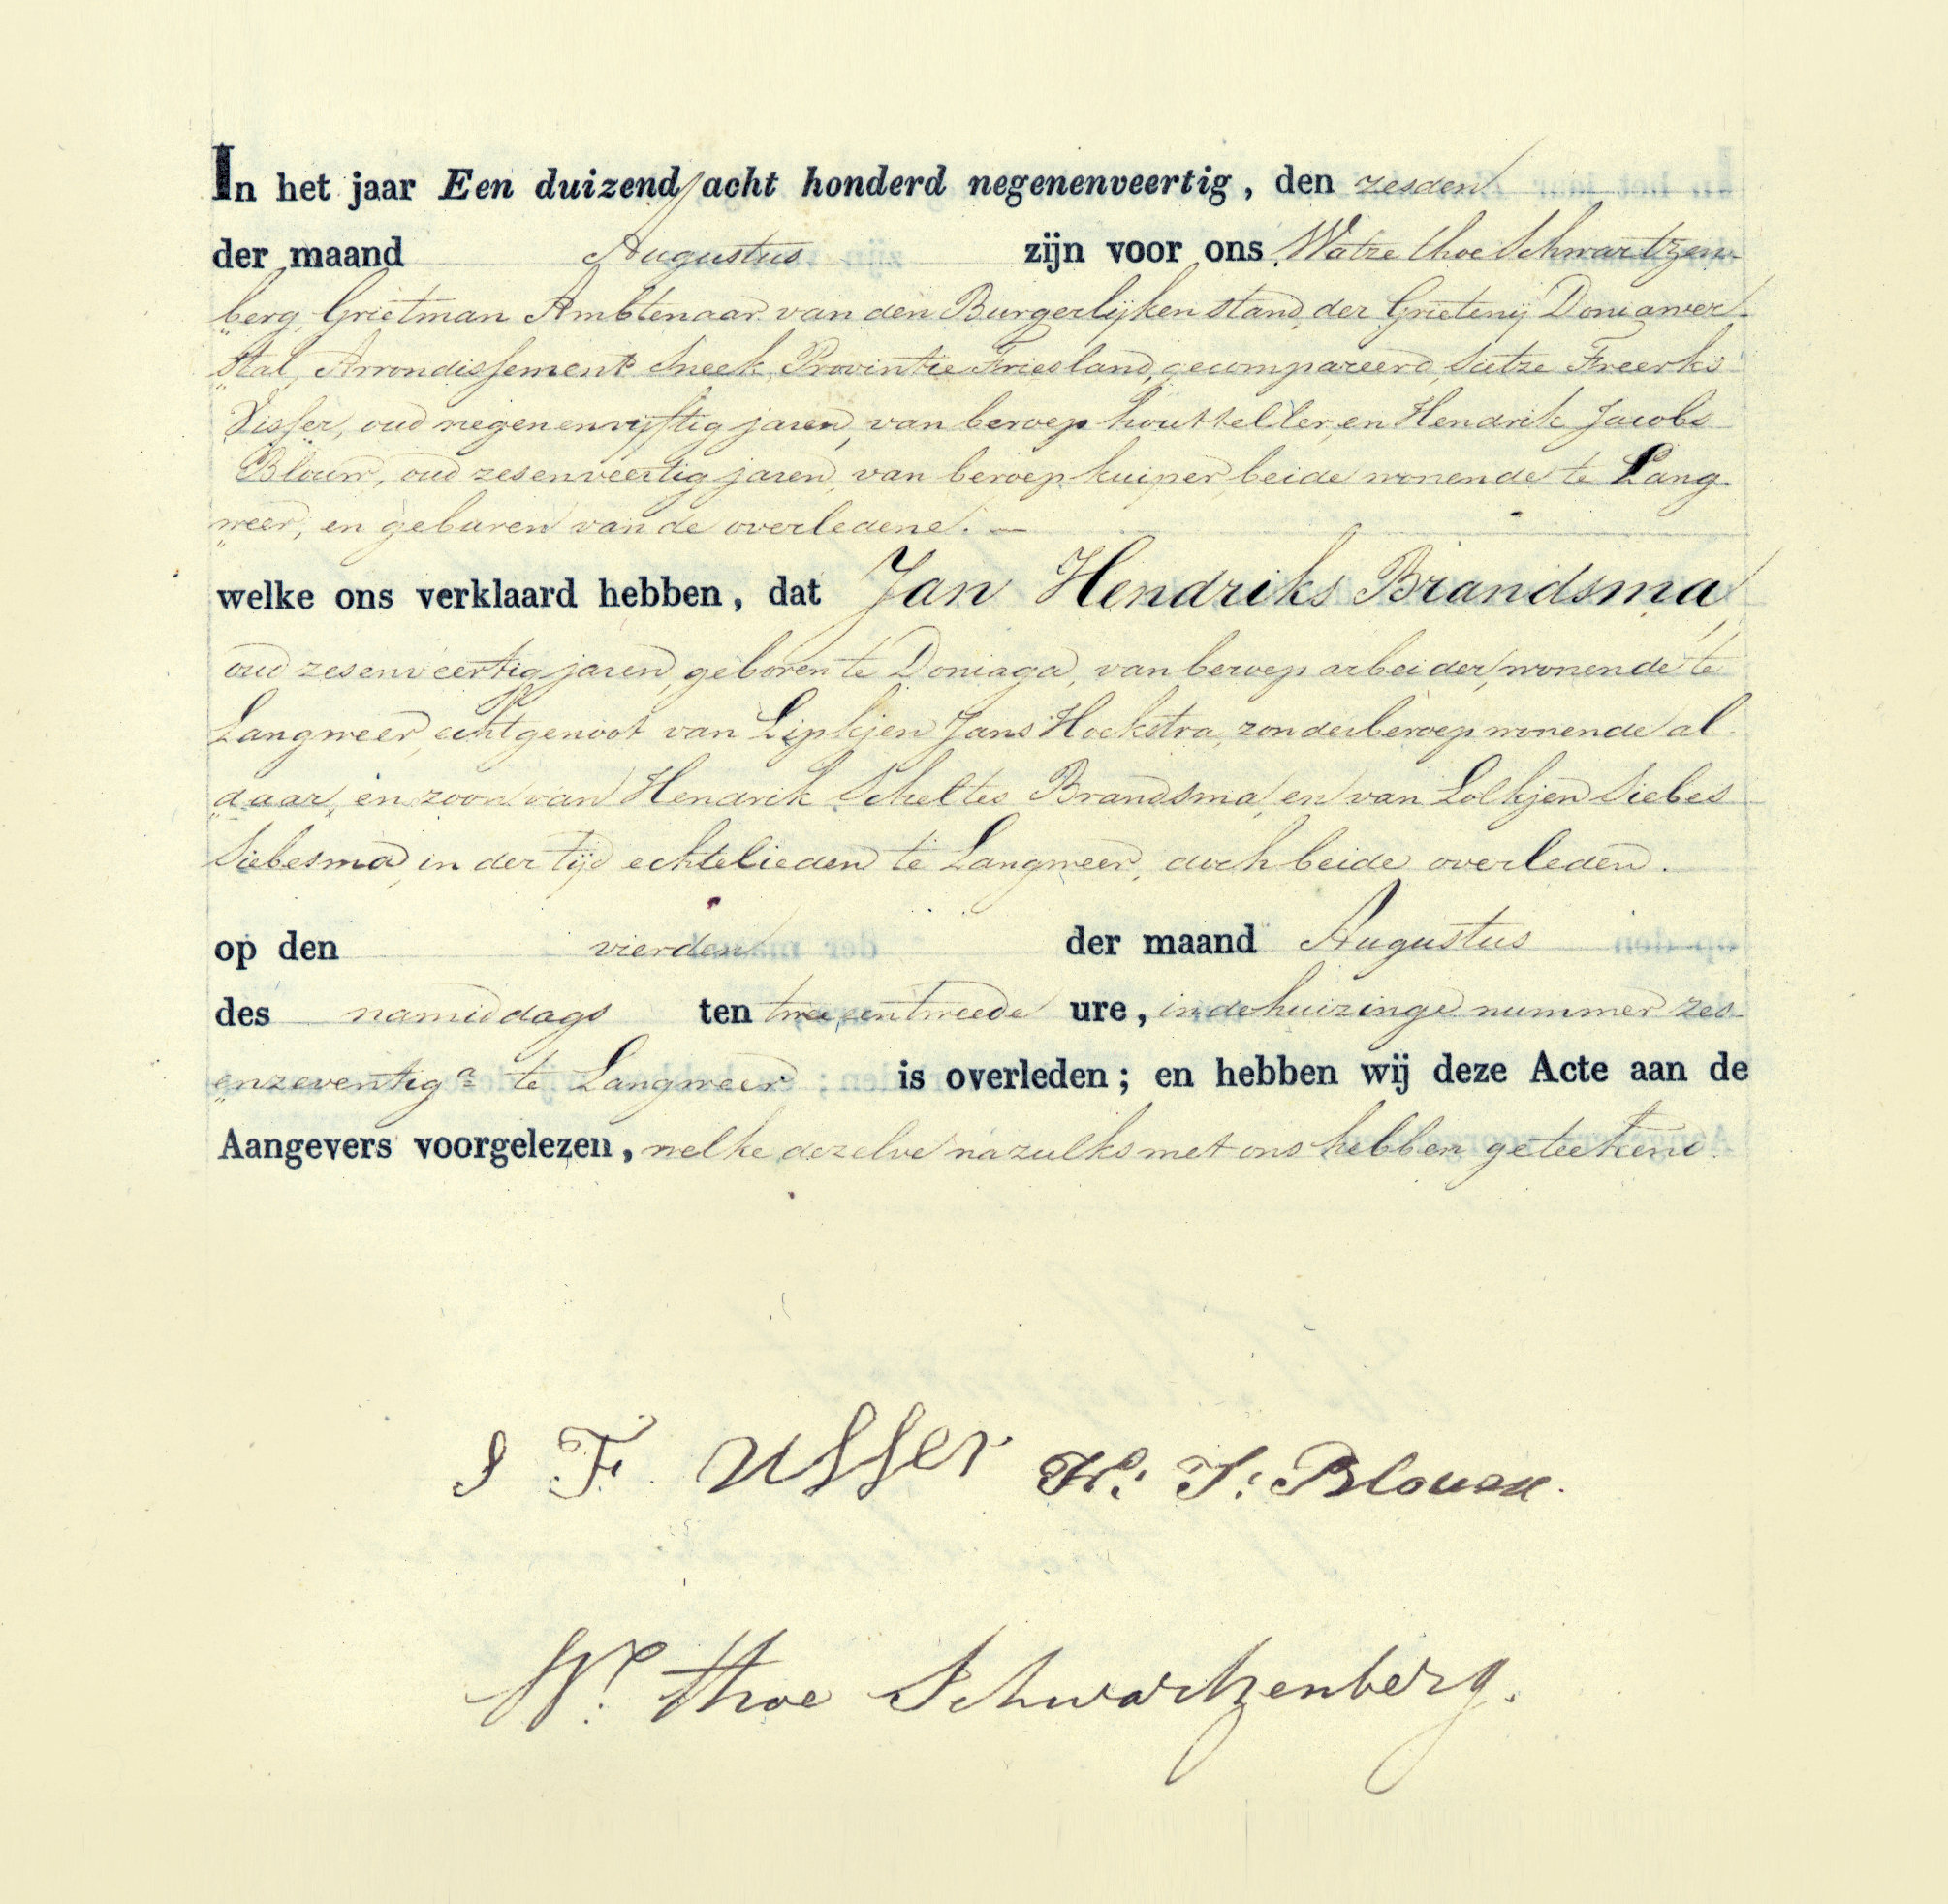 In het jaar Een duizend acht honderd negenenveertig, den zesden
der maand Augustus zijn voor ons Watze thoe Schwartzen-
berg Grietman Ambtenaar van den Burgerlijken stand der Grietenij Doniawer-
stal, Arrondissement Sneek, Provintie Friesland, gecompareerd, Sietze Freerks
Visser, oud negenenvijftig jaren, van beroep houtteller, en Hendrik Jacobs
Blouw, oud zesenveertig jaren, van beroep kuiper beide wonende te Lang-
weer, en geburen van de overledene. —
welke ons verklaard hebben, dat Jan Hendriks Brandsma,
oud zesenveertig jaren, geboren te Doniaga, van beroep arbeider, wonende te
Langweer, echtgenoot van Lipkjen Jans Hoekstra, zonder beroep wonende al-
daar, en zoon van Hendrik Scheltes Brandsma, en van Lolkjen Siebes
Siebesma, in der tijd echtelieden te Langweer, doch beide overleden.
op den vierden der maand Augustus
des namiddags ten twee en tweede ure, in de huizinge nummer zes-
enzeventig a te Langweer is overleden; en hebben wij deze Acte aan de
Aangevers voorgelezen, welke dezelve na zulks met ons hebben geteekend.
S F Visser H: J: Blouw.
W. thoe Schwartzenberg.